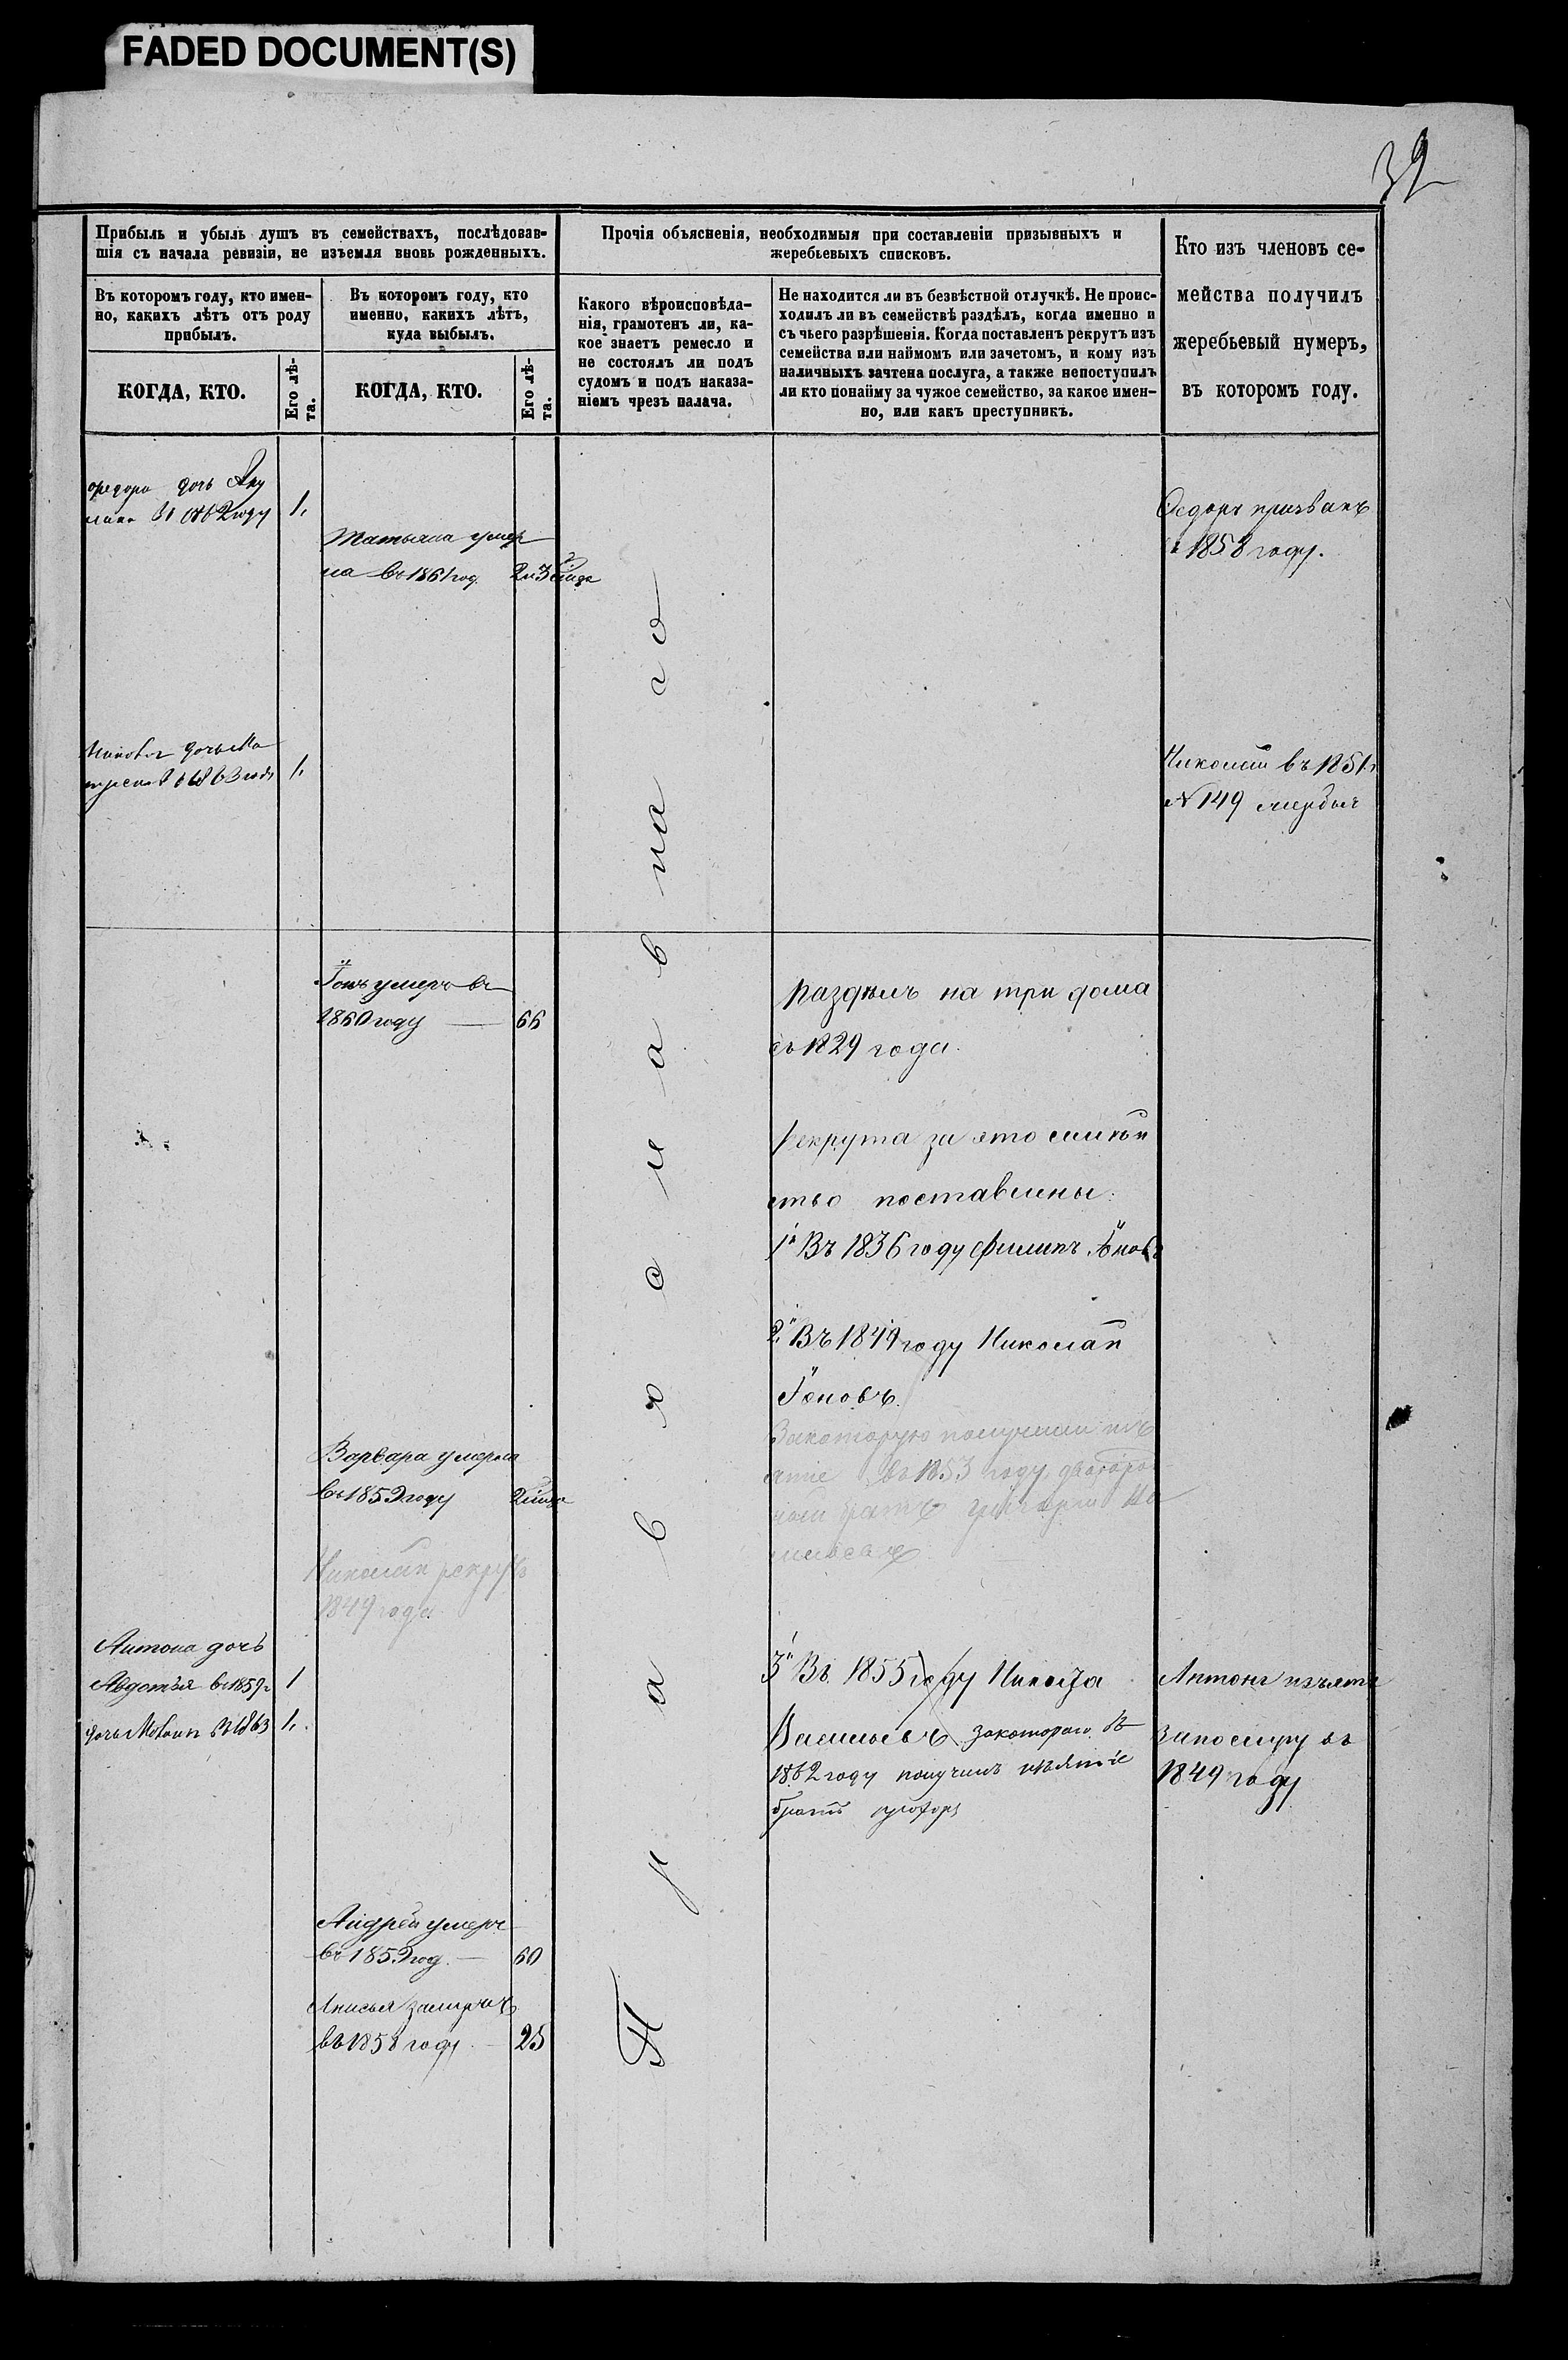 FADED DOCUMENT(S)
32
Прибыль и убыль душъ въ семействахъ, послѣдовав-
шія съ начала ревизіи, не изъемля вновь рожденныхъ.
Въ которомъ году, кто имен-
но, какихъ лѣтъ отъ роду
прибылъ.
Въ которомъ году, кто
именно, какихъ лѣтъ,
куда выбылъ.
КОГДА, КТО.
Его лѣ-
та.
КОГДА, КТО.
Его лѣ-
та.
Прочія объясненія, необходимыя при составленіи призывныхъ и
жеребьевыхъ списковъ.
Какого вѣроисповѣда-
нія, грамотенъ ли, ка-
кое знаетъ ремесло и
не состоялъ ли подъ
судомъ и подъ наказа-
ніемъ чрезъ палача.
Не находится ли въ безвѣстной отлучкѣ. Не проис-
ходилъ ли въ семействѣ раздѣлъ, когда именно и
съ чьего разрѣшенія. Когда поставленъ рекрутъ изъ
семейства или наймомъ или зачетомъ, и кому изъ
наличныхъ зачтена послуга, а также непоступилъ
ли кто понайму за чужое семейство, за какое имен-
но, или какъ преступникъ.
Кто изъ членовъ се-
мейства получилъ
жеребьевый нумеръ,
въ которомъ году.
дочь Аку
лина въ 1862 году 1.
Татьяна умер
ла въ 1861 год.
Федоръ призванъ
въ 1858 году.
дочь Ма
трена въ 1863 1.
Николай въ 1851
№ 149
Православнаго
Іонъ умеръ въ
1860 году 66
Раздѣлъ на три дома
съ 1829 года.
Рекрута за это семѣй
ство поставлены:
1й Въ 1836 году Филипъ Іоновъ
2й Въ 1849 году Николай
Іоновъ.
Закоторую получили изъ
ятіе въ 1853 году двоюро
ной братъ Григорій
Варвара умерла
въ 1859 году
Николай рекрутъ
1849 года
Антона дочь
Авдотья въ 1859 г 1
дочь въ 1863 1.
3й Въ 1855 году
Васильевъ закотораго въ
1862 году получилъ изъятіе
братъ
Антонъ изъятъ
въ
1849 году
Андрей умеръ
въ 1859 год. 60
Анисья замужъ
въ 1858 году 25